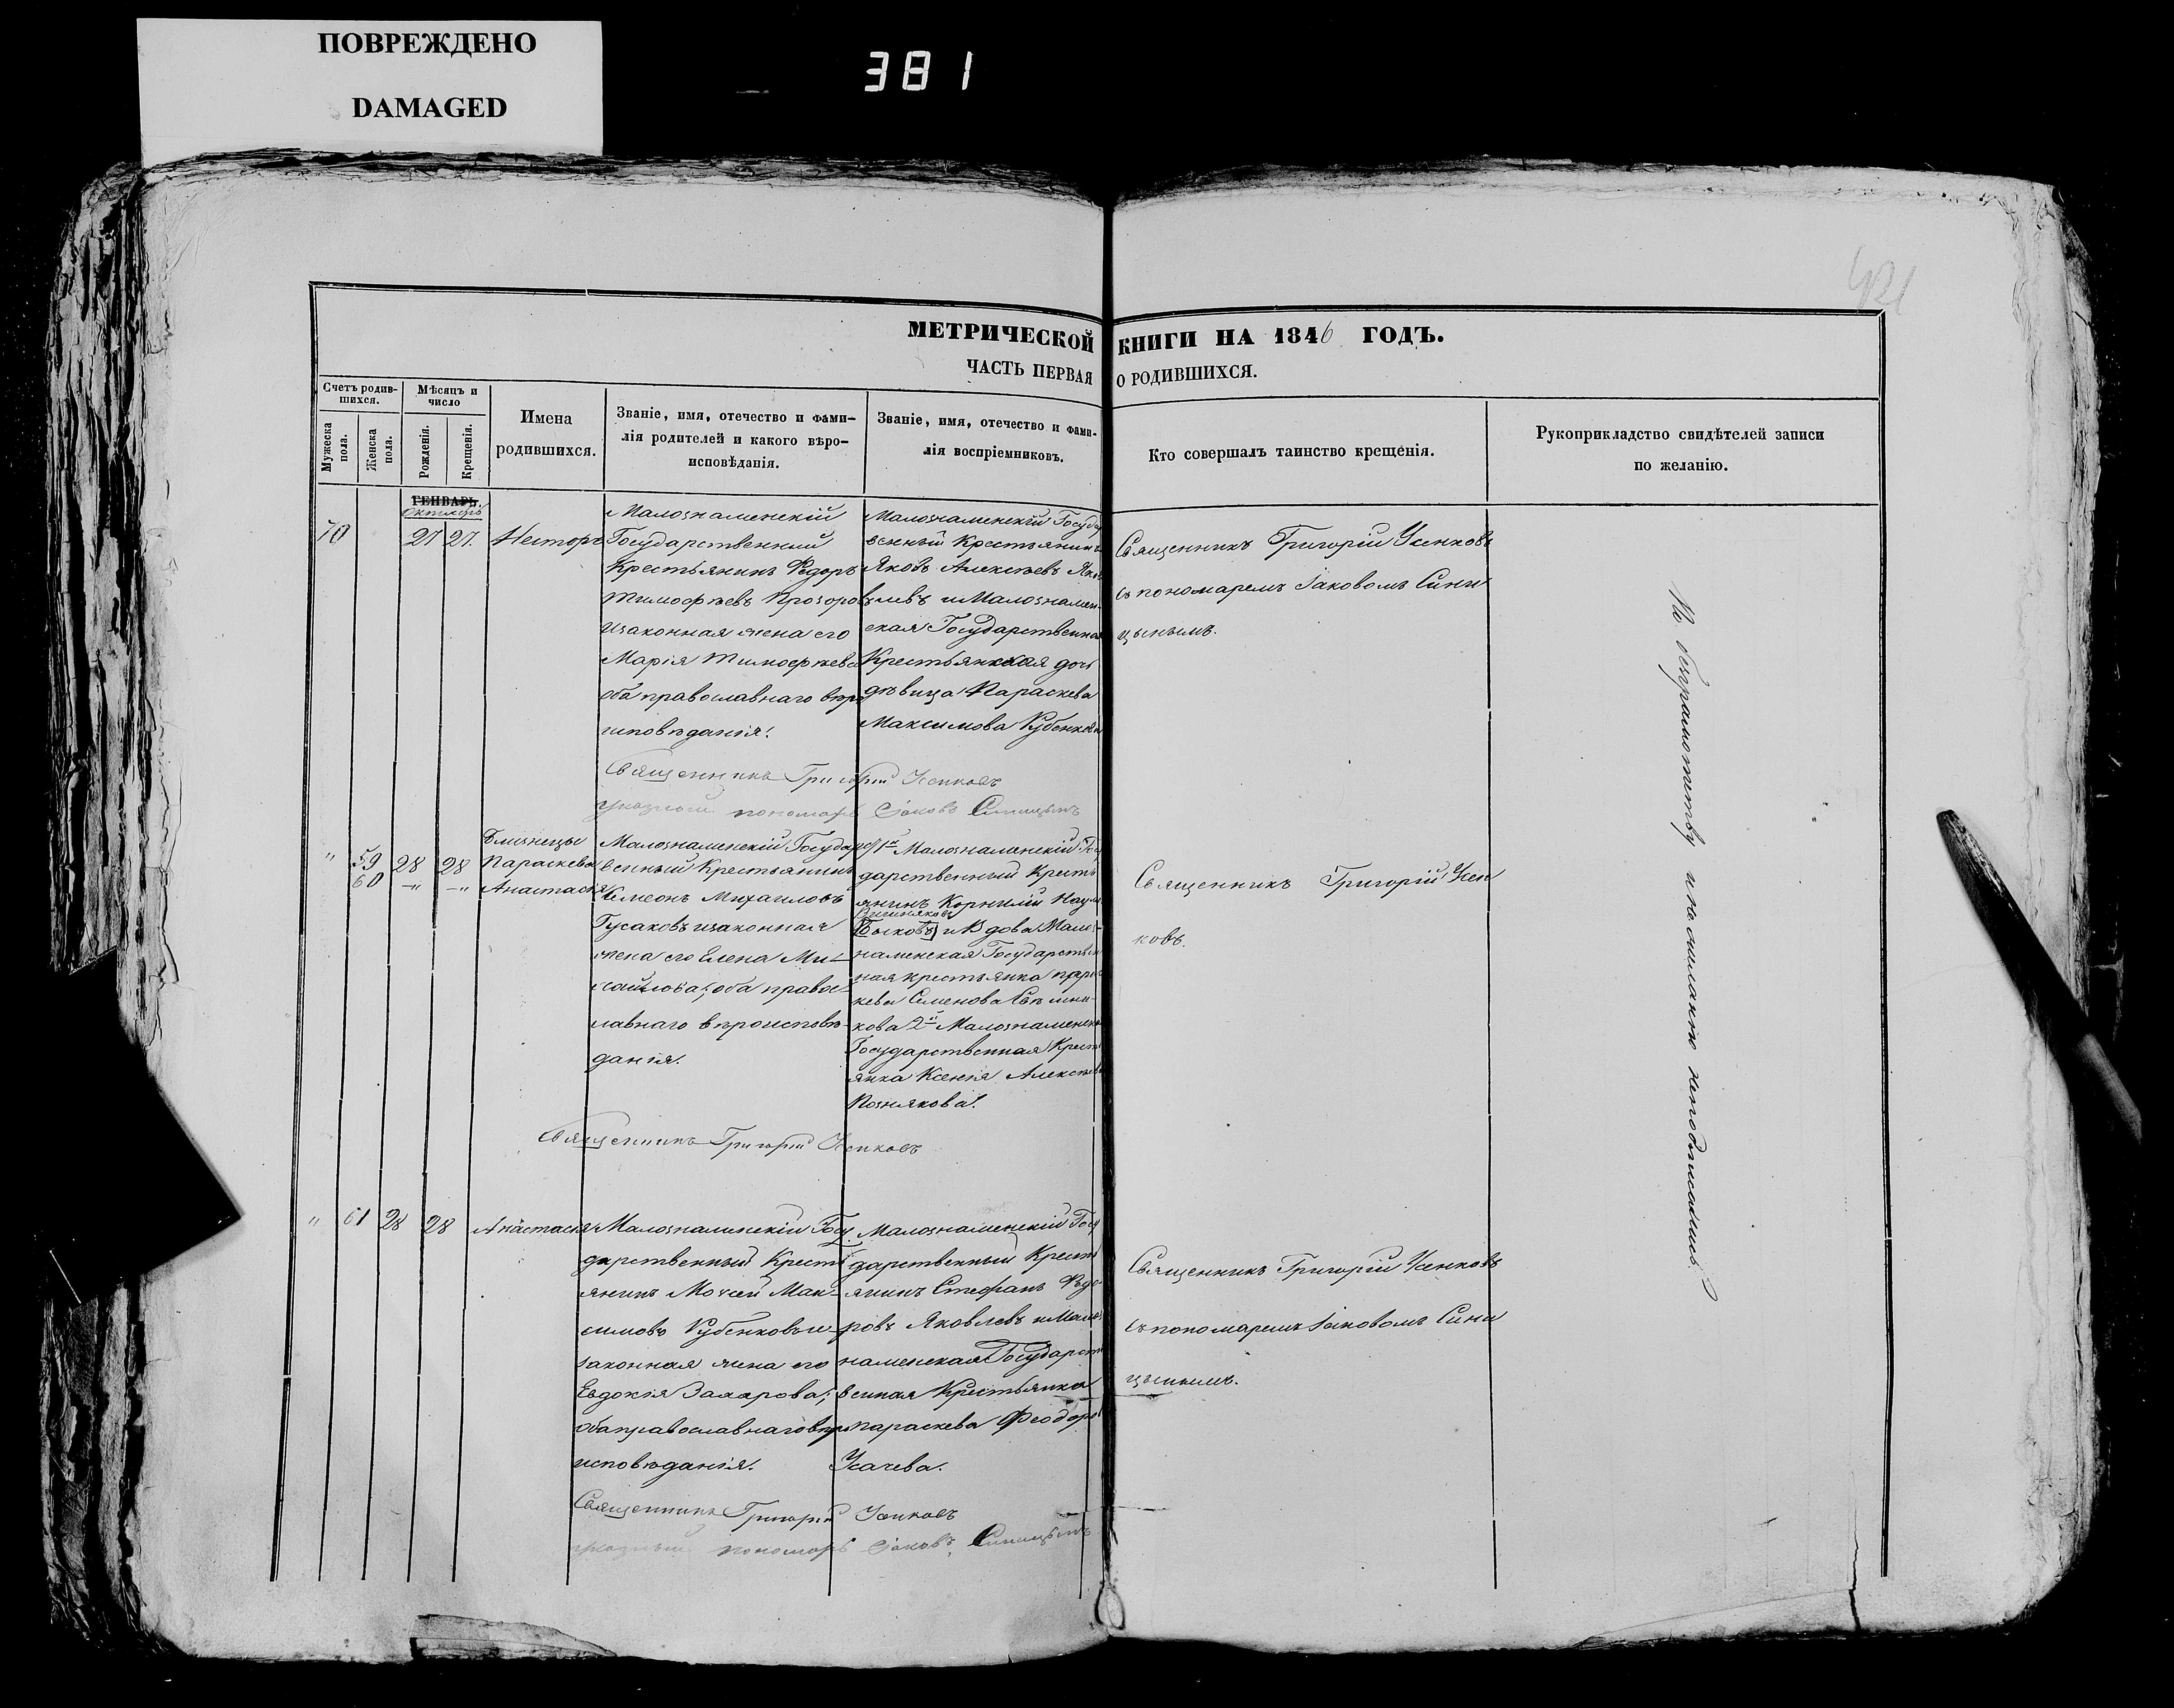 ПОВРЕЖДЕНО
DAMAGED
381
421
МЕТРИЧЕСКОЙ КНИГИ НА 1846 ГОДЪ.
ЧАСТЬ ПЕРВАЯ О РОДИВШИХСЯ.
Счетъ родив-
шихся.
Мужеска
пола.
Женска
пола.
Мѣсяцъ и
число
Рожденія.
Крещенія.
Имена
родившихся.
Званіе, имя, отечество и фами-
лія родителей и какого вѣро-
исповѣданія.
Званіе, имя, отечество и фами-
лія воспріемниковъ.
Кто совершалъ таинство крещенія.
Рукоприкладство свидѣтелей записи
по желанію.
ГЕНВАРЬ.
Октябрь
70
27
27.
Несторъ
Малознаменскій
Государственный
Крестьянинъ Ѳедоръ
Тимоѳѣевъ Прозоровъ
и законная жена его
Марія Тимоѳѣева
оба православнаго вѣро
исповѣданія.
Малознаменскій Госуда
венный Крестьянинъ
Яковъ Алексѣевъ Яков
левъ и Малознамен-
ская Государственная
Крестьянская дочь
дѣвица Параскева
Максимова Кубенкова
Священникъ Григорій Усенковъ
съ пономаремъ Іаковомъ Сини
цынымъ.
Священникъ Григорій Усенковъ
указный пономарь Іаковъ Синицынъ
"
59
60
28
—"
28
—"
близнецы
Параскева
Анастасія
Малознаменскій Государст
венный Крестьянинъ
Симеонъ Михаиловъ
Гусаковъ и законная
жена его Елена Ми-
хайлова; оба право-
лавнаго вѣроисповѣ-
данія.
1й Малознаменскій Гос
дарственный Кресть
янинъ Корнилій Наум
и Вдова Малоз-
наменская Государствен
ная крестьянка парас
кева Семенова
кова 2й Малознаменская
Государственная Крест
янка Ксенія Алексѣева
Познякова.
Священникъ Григорій Усен
ковъ.
Священникъ Григорій Усенковъ
"
61
28
28
Анастасія
Малознаменскій Госу
дарственный Кресть
янинъ Моисей Мак-
симовъ Кубенковъ и
законная жена его
Евдокія Захарова;
оба православнаго вѣро
исповѣданія.
Малознаменскій Госу
дарственный Кресть
янинъ Стефанъ Ѳедо
ровъ Яковлевъ и Малоз
наменская Государст
венная Крестьянка
параскева Феодоро
Усачева.
Священникъ Григорій Усенковъ
съ пономаремъ Іаковомъ Сини
цынымъ.
Священникъ Григорій Усенковъ
указный пономарь Іаковъ Синицынъ
По безграмотству и по желанію неподписались